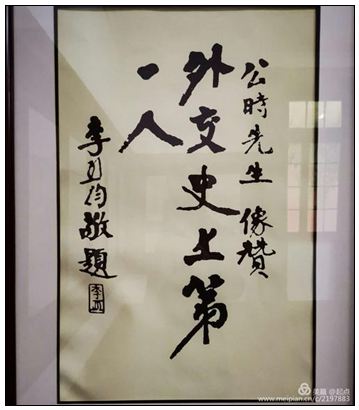 公時先生 像贊
外交史上第
一人
李烈鈞敬題
美篇 @起点
www.meipian.cn/c/2197883